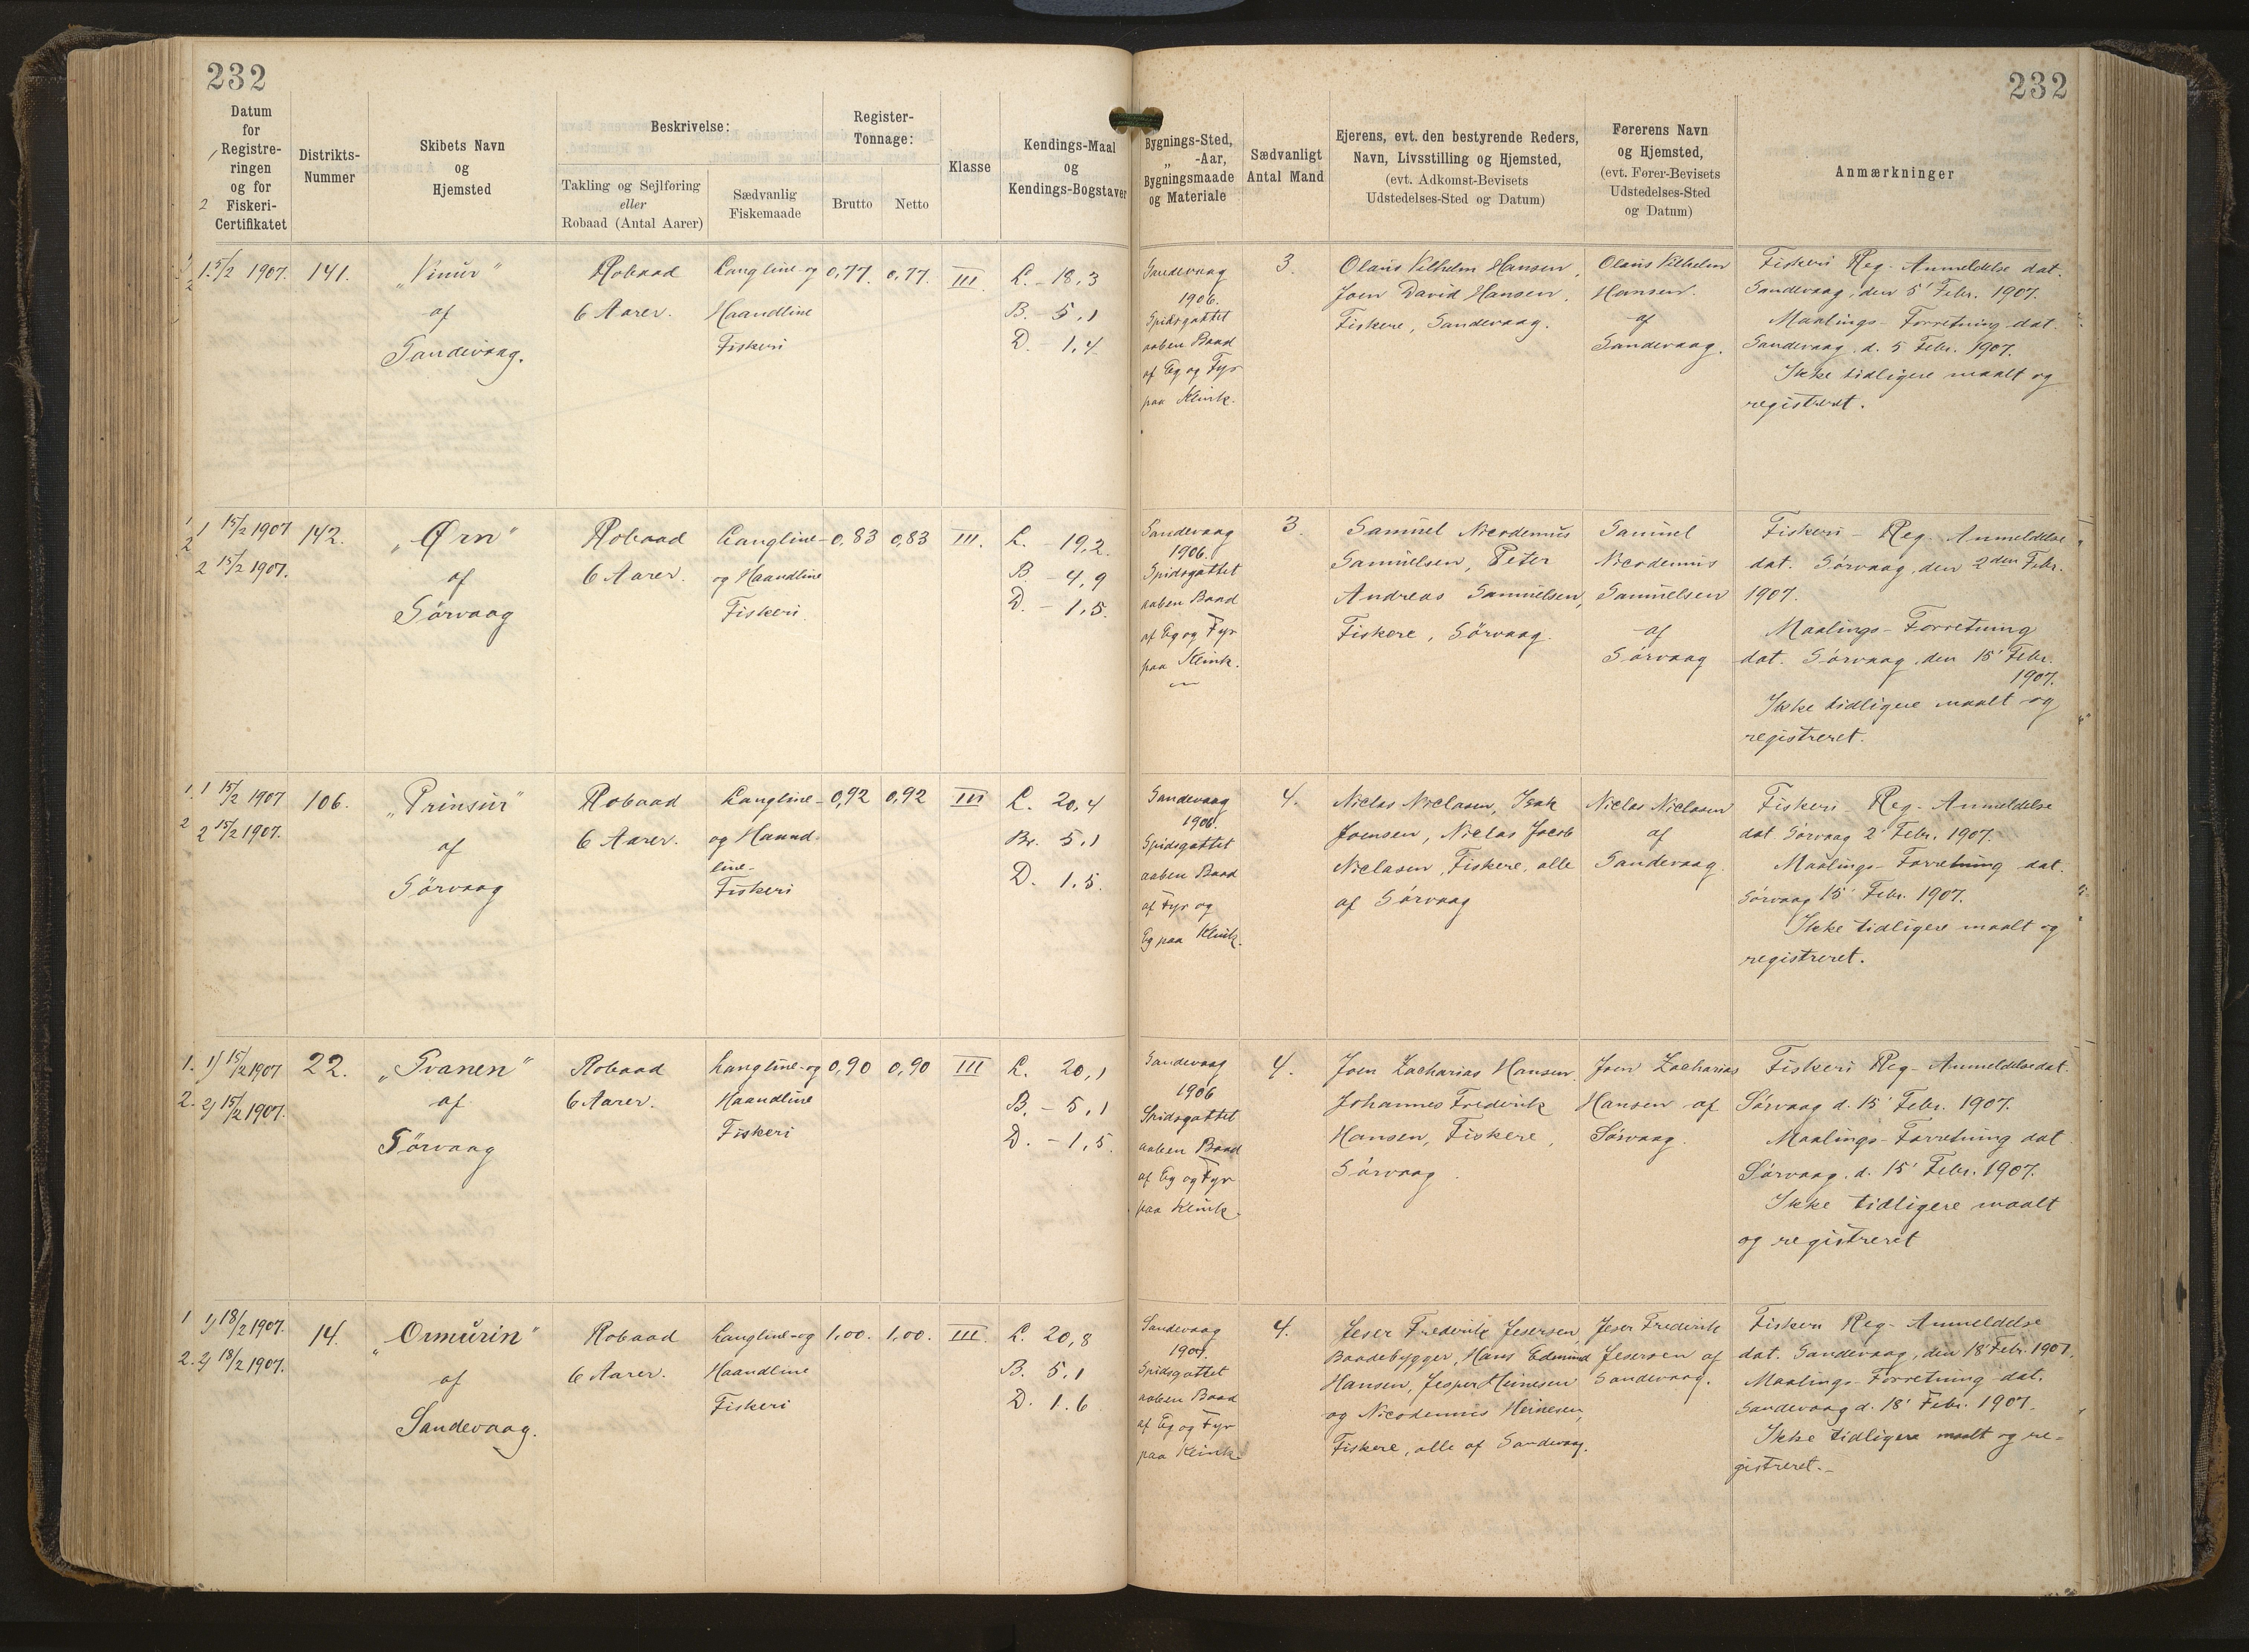 232
232
Datum
for
Registre-
ringen
og for
Fiskeri-
Certifikatet
1
2
Distrikts-
Nummer
Skibets Navn
og
Hjemsted
Beskrivelse:
Takling og Sejlføring
eller
Robaad (Antal Aarer)
Sædvanlig
Fiskemaade
Register-
Tonnage:
Brutto
Netto
Klasse
Kendings-Maal
og
Kendings-Bogstaver
Bygnings-Sted,
„ -Aar,
Bygningsmaade
og Materiale
Sædvanligt
Antal Mand
Ejerens, evt. den bestyrende Reders,
Navn, Livsstilling og Hjemsted,
(evt. Adkomst-Bevisets
Udstedelses-Sted og Datum)
Førerens Navn
og Hjemsted,
(evt. Fører-Bevisets
Udstedelses-Sted
og Datum)
Anmærkninger
15/2 1907.
141.
„Vinur“
af
Sandevaag.
Robaad
6 Aarer.
Langline- og
Haandline
Fiskeri
0,77.
0,77.
III.
L. - 18,3
B. - 5,1
D. - 1,4
Sandevaag
1906.
Spidsgattet
aaben Baad
af Eg og Fyr
paa Klink.
3.
Olaus Vilhelm Hansen,
Joen David Hansen,
Fiskere, Sandevaag.
Olaus Vilhelm
Hansen.
af
Sandevaag.
Fiskeri Reg. Anmeldelse dat.
Sandevaag, den 5' Febr. 1907.
Maalings-Forretning dat.
Sandevaag, d. 5 Febr. 1907.
Ikke tidligere maalt og
registreret.
1 15/2 1907
2 15/2 1907.
142.
„Ørn“
af
Sörvaag
Robaad
6 Aarer.
Langline-
og Haandline
Fiskeri.
0,83
0,83
III.
L. - 19,2
B. - 4,9
D. - 1,5.
Sandevaag
1906.
Spidsgattet
aaben Baad
af Eg og Fyr
paa Klink.
3.
Samuel Nicodemus
Samuelsen, Peter
Andreas Samuelsen,
Fiskere, Sörvaag.
Samuel
Nicodemus
Samuelsen
af
Sörvaag
Fiskeri-Reg. Anmeldelse
dat. Sörvaag, den 2den Febr.
1907.
Maalings-Forretning
dat. Sörvaag, den 15' Febr.
1907.
Ikke tidligere maalt og
registreret.
1 15/2 1907
2 15/2 1907.
106.
„Prinsur“
af
Sörvaag
Robaad
6 Aarer.
Langline-
og Haand-
line-
Fiskeri
0,92
0,92
III
L. 20,4
Br. 5,1
D. 1,5.
Sandevaag
1906.
Spidsgattet
aaben Baad
af Fyr og
Eg paa Klink.
4.
Niclas Niclasen, Isak
Joensen, Niclas Jacob
Niclasen, Fiskere, alle
af Sörvaag
Niclas Niclasen
af
Sandevaag.
Fiskeri-Reg. Anmeldelse
dat. Sörvaag 2' Febr. 1907.
Maalings-Forretning dat.
Sörvaag 15' Febr. 1907.
Ikke tidligere maalt og
registreret.
1) 15/2 1907
2) 15/2 1907.
22.
„Svanen“
af
Sörvaag
Robaad
6 Aarer.
Langline- og
Haandline
Fiskeri
0,90
0,90
III
L. 20,1
B. - 5,1
D. - 1,5.
Sandevaag
1906
Spidsgattet
aaben Baad
af Eg og Fyr
paa Klink.
4.
Joen Zacharias Hansen,
Johannes Frederik
Hansen, Fiskere,
Sörvaag.
Joen Zacharias
Hansen af
Sörvaag.
Fiskeri Reg-Anmeldelse dat.
Sörvaag d. 15' Febr. 1907.
Maalings-Forretning dat
Sörvaag, d. 15' Febr. 1907.
Ikke tidligere maalt
og registreret
1) 18/2 1907.
2) 18/2 1907.
14.
„Ormurin“
af
Sandevaag.
Robaad
6 Aarer.
Langline- og
Haandline
Fiskeri
1,00.
1,00.
III.
L. 20,8
B. 5,1
D. 1.6
Sandevaag
Spidsgattet
aaben Baad
af Eg og Fyr
paa Klink.
4.
Frederik
Baadebygger, Hans Edmund
Hansen, Jesper Heinesen
og Nicodemus Heinesen,
Fiskere, alle af Sandevaag.
Frederik
af
Sandevaag.
Fiskeri Reg-Anmeldelse
dat. Sandevaag, den 18' Febr. 1907.
Maalings-Forretning dat.
Sandevaag d. 18' Febr. 1907.
Ikke tidligere maalt og re-
gistreret.-